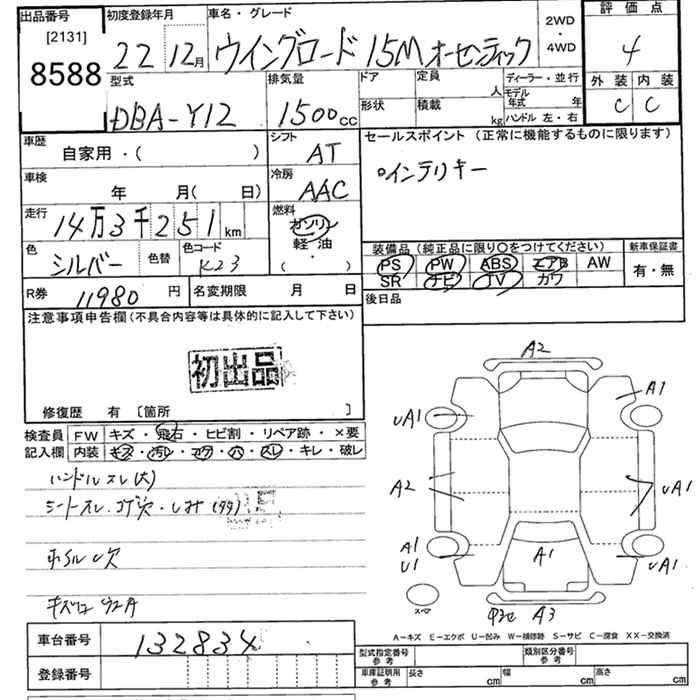 出品番号 初度登録年月 車名・グレード 2WD・4WD 評価点
[2131]
8588 22 12月 ウイングロード 15M オーセンティック 4
型式 排気量 ドア 定員 人 ディーラー・並行 外装 内装
DBA-Y12 1500cc 形状 積載 kg モデル年式 年 C C
ハンドル 左・右
車歴 自家用・( ) シフト AT セールスポイント (正常に機能するものに限ります)
車検 年 月( 日) 冷房 AAC ○インテリキー
走行 14万3千251km 燃料 ガソリン・軽油・( )
色 シルバー 色替 色コード K23 装備品 (純正品に限り○をつけてください) 新車保証書
PS PW ABS エアB AW 有・無
SR ナビ TV カワ
R券 11980円 名変期限 月 日 後日品
注意事項申告欄(不具合内容等は具体的に記入して下さい)
初出品
修復歴 有 [箇所 ]
検査員 FW キズ・飛石・ヒビ割・リペア跡・×要
記入欄 内装 キズ・汚レ・コゲ・ハ・スレ・キレ・破レ
ハンドルスレ(大)
シートスレ.コゲ穴・しみ
ホイル
車台番号 132834
登録番号
A2
A1
UA1
A2
UA1
A1
U1
A1
UA1
スペア
A3
A−キズ E−エクボ U−凹み W−補修跡 S−サビ C−腐食 XX−交換済
型式指定番号 参考 類別区分番号 参考
車庫証明用 参考 長さ cm 幅 cm 高さ cm